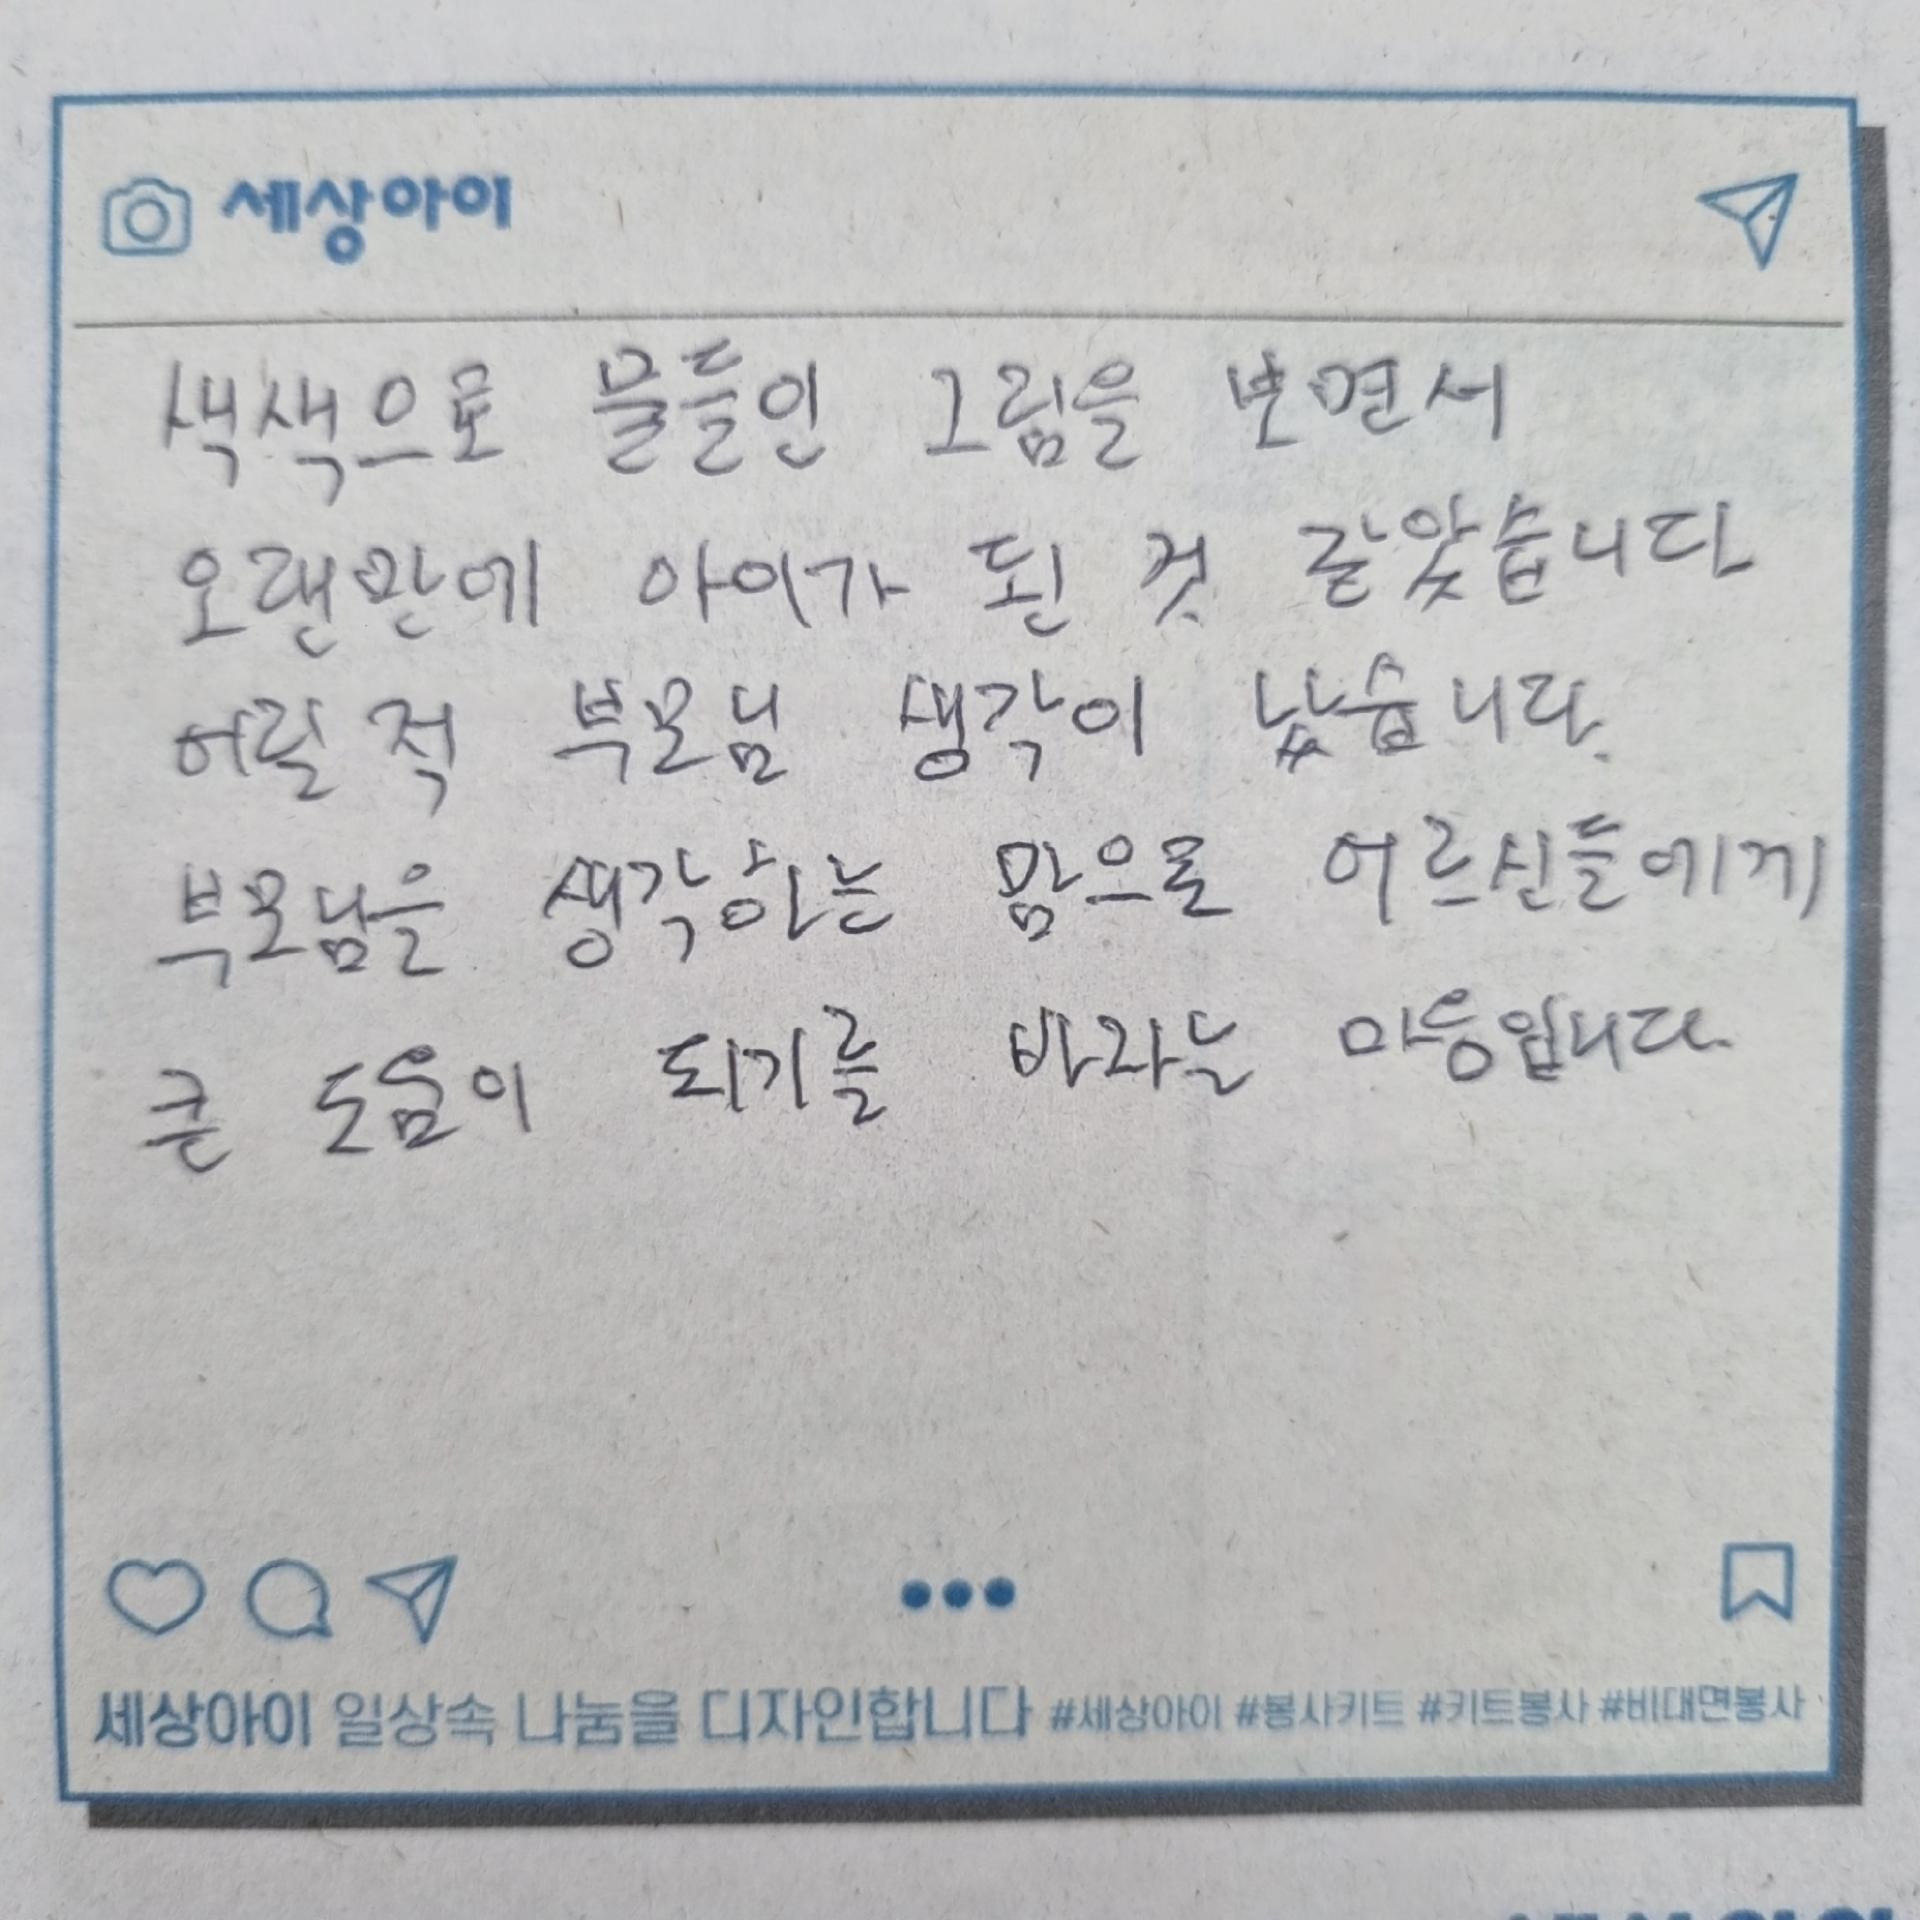 세상아이
색색으로 물들인 그림을 보면서
오랜만에 아이가 된 것 같았습니다
어릴 적 부모님 생각이 났습니다.
부모님을 생각하는 맘으로 어르신들에게
큰 도움이 되기를 바라는 마음입니다.
세상아이 일상속 나눔을 디자인합니다 #세상아이 #봉사키트 #키트봉사 #비대면봉사